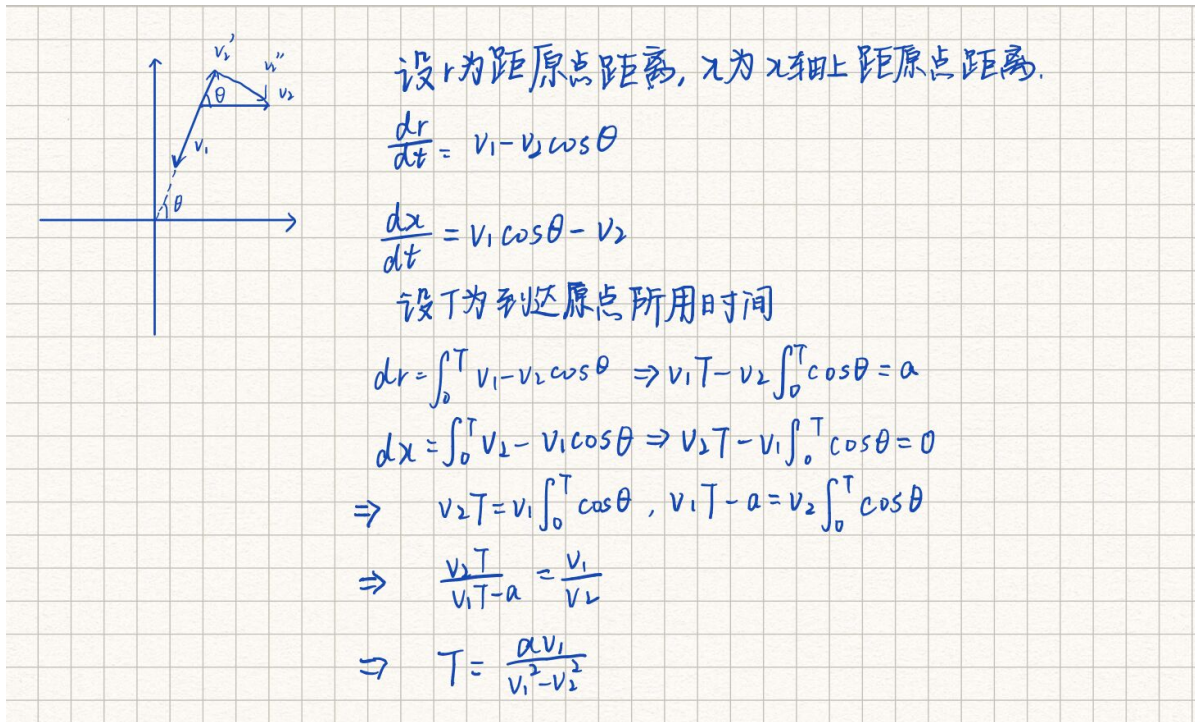 v₂'
v₂''
θ
v₂
v₁
θ
设r为距原点距离, x为x轴上距原点距离.
dr/dt = v₁-v₂cosθ
dx/dt = v₁cosθ-v₂
设T为到达原点所用时间
dr=∫₀ᵀ v₁-v₂cosθ ⇒v₁T-v₂∫₀ᵀcosθ=a
dx=∫₀ᵀv₂-v₁cosθ⇒v₂T-v₁∫₀ᵀcosθ=0
⇒ v₂T=v₁∫₀ᵀcosθ, v₁T-a=v₂∫₀ᵀcosθ
⇒ v₂T/(v₁T-a) = v₁/v₂
⇒ T= av₁/(v₁²-v₂²)